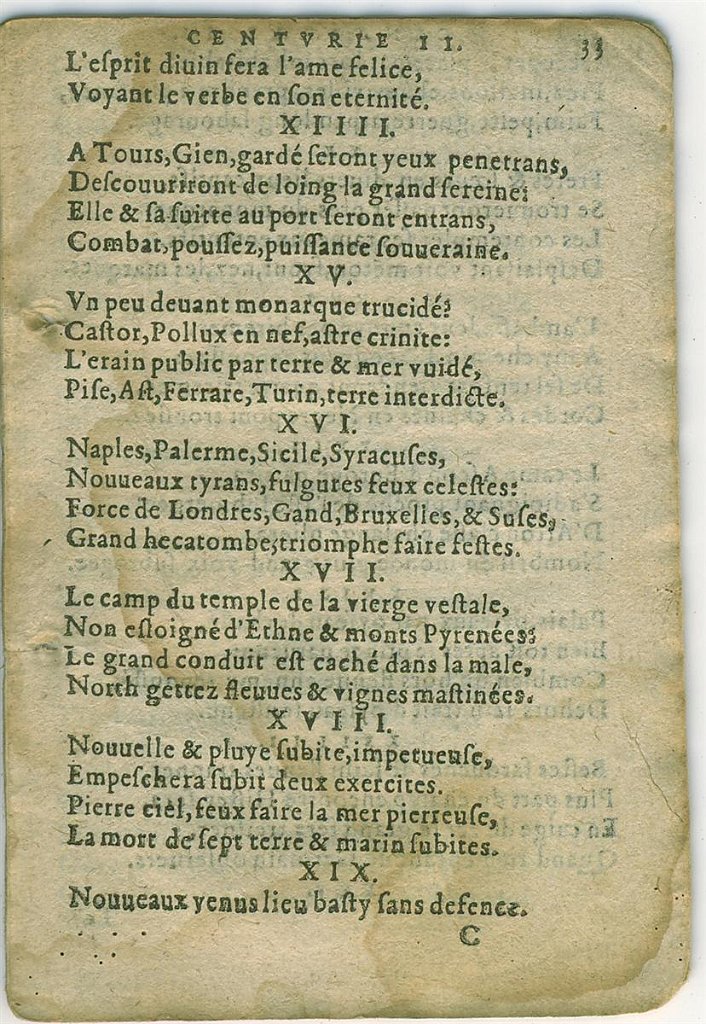 CENTVRIE II. 33
L'eſprit diuin ſera l'ame felice,
Voyant le verbe en ſon eternité.
XIIII.
A Tours, Gien, gardé ſeront yeux penetrans,
Deſcouuriront de loing la grand ſereine:
Elle & ſa ſuitte au port ſeront entrans,
Combat, pouſſez, puiſſance ſouueraine.
XV.
Vn peu deuant monarque trucidé?
Caſtor, Pollux en nef, aſtre crinite:
L'erain public par terre & mer vuidé,
Piſe, Aſt, Ferrare, Turin, terre interdicte.
XVI.
Naples, Palerme, Sicile, Syracuſes,
Nouueaux tyrans, fulgures feux celeſtes:
Force de Londres, Gand, Bruxelles, & Suſes,
Grand hecatombe, triomphe faire feſtes.
XVII.
Le camp du temple de la vierge veſtale,
Non eſloigné d'Ethne & monts Pyrenées:
Le grand conduit eſt caché dans la male,
North gettez fleuues & vignes maſtinées.
XVIII.
Nouuelle & pluye ſubite, impetueuſe,
Empeſchera ſubit deux exercites.
Pierre ciel, feux faire la mer pierreuſe,
La mort de ſept terre & marin ſubites.
XIX.
Nouueaux venus lieu baſty ſans defence.
C